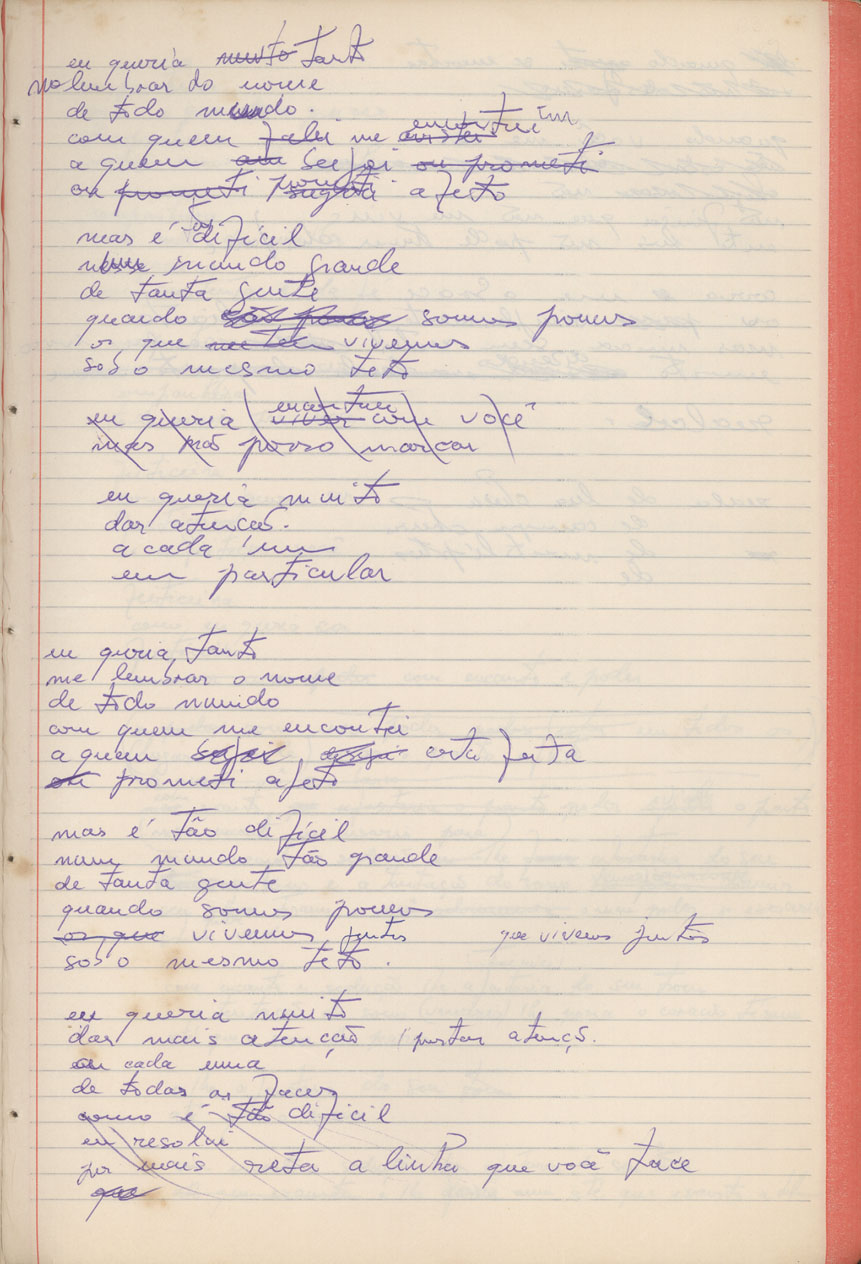 eu queria muito tanto
lembrar do nome
de todo mundo.
com quem falei me encontrei um
a quem segui ou prometi
ou prometi afeto
mas é tão difícil
nesse mundo grande
de tanta gente
quando somos poucos
os que vivemos
sob o mesmo teto
eu queria viver encontrar com você
mas não posso marcar
eu queria muito
dar atenção.
a cada um
em particular
eu queria tanto
me lembrar o nome
de todo mundo
com quem me encontrei
a quem certa feita
ou prometi afeto
mas é tão difícil
num mundo tão grande
de tanta gente
quando somos poucos
os que vivemos juntos que vivemos juntos
sob o mesmo teto.
eu queria muito
dar mais atenção / prestar atenç.
a cada uma
de todas as faces
como é tão difícil
eu resolvi
por mais reta a linha que você trace
que